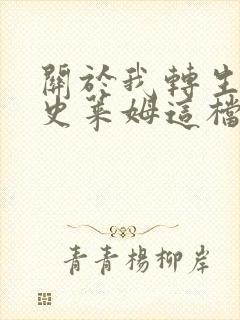 關於我轉生
史萊姆這檔
青青楊柳岸